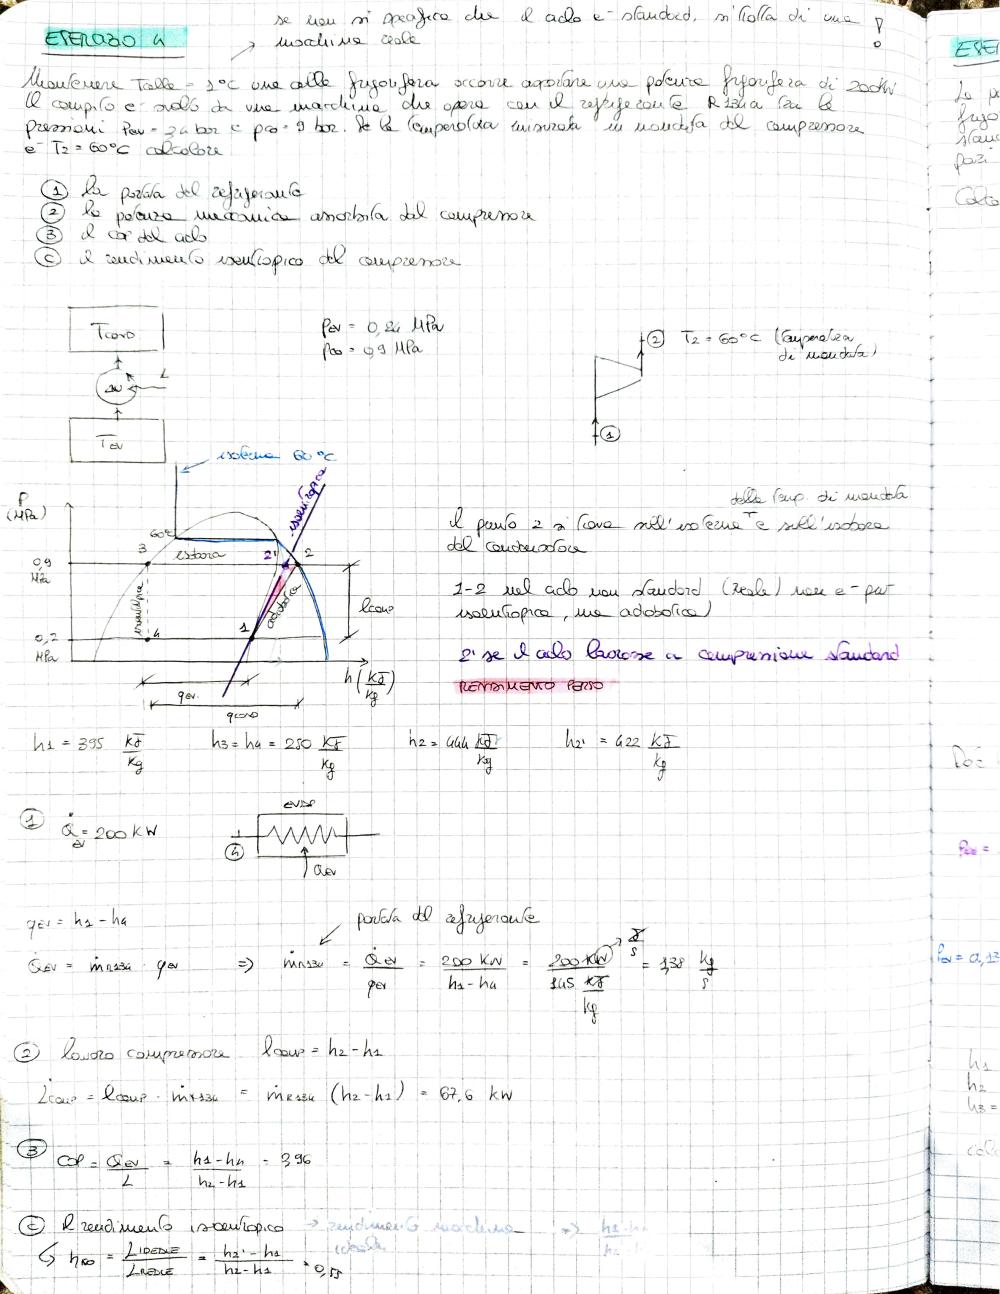 se non si specifica che il ciclo e- standard, si tratta di una !
macchina reale
ESERCIZO 4
Mantenere Talle = 1°C una cella frigorifera occorre asportare una potenza frigorifera di 200kW
Il compito e- svolto da una macchina che opera con il refrigerante R134a tra le
pressioni Pev = 2,4 bar e pco = 9 bar. Se la temperatura misurata in mandata del compressore
e- T2 = 60°C calcolare
1 la portata del refrigerante
2 la potenza meccanica assorbita dal compressore
3 il cop del ciclo
C il rendimento isentropico del compressore
TCOND
ΔW
L
TEV
PEV = 0,24 MPa
pco = 0,9 MPa
2 T2 = 60°C (temperatura
di mandata)
1
isoterma 60°C
P
(MPa)
60°
3
isobara
2'
2
isentropica
isentropica
adiabatica
0,9
MPa
0,2
MPa
4
1
lcomp
h (kJ/kg)
qev
qcond
della temp. di mandata
il punto 2 si trova sull'isoterma e sull'isobara
del condensatore
1-2 nel ciclo non standard (reale) non e- piu'
isoentropica, ma adiabatica)
2' se il ciclo lavorasse a compressione standard
RENDIMENTO PERSO
h1 = 395 kJ/kg h3 = h4 = 250 kJ/kg h2 = 444 kJ/kg h2' = 422 kJ/kg
1 Q̇ev = 200 KW
EVAP
4
QEV
qev = h1 - h4
portata del refrigerante
Q̇EV = ṁR134 · qev => ṁR134 = Q̇EV/qev = 200 KW/h1 - h4 = 200 KW/145 kJ/kg = 1,38 kg/s
kJ/s
2 lavoro compressore lcomp = h2 - h1
L̇comp = lcomp · ṁR134 = ṁR134 (h2 - h1) = 67,6 kW
3 COP = Q̇EV/L = h1 - h4/h2 - h1 = 2,96
C Il rendimento isoentropico → rendimento macchina => h2'-h1
ideale
hiso = LIDEALE/LREALE = h2' - h1/h2 - h1 = 0,55
ESER
Pev = 0,13
h1
h2
h3 =